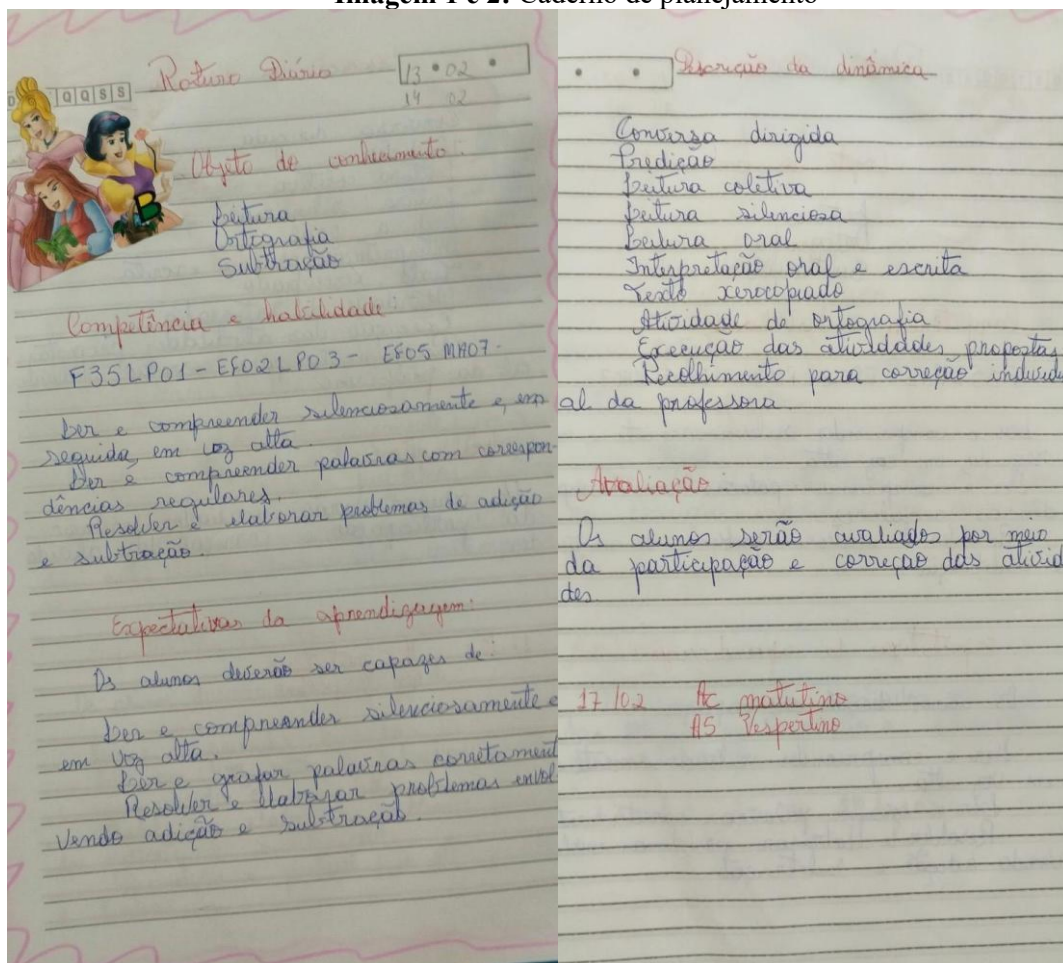 Imagem 1 e 2: Caderno de planejamento
Q Q S S
Roteiro Diário
13 • 02 •
14 02
Objeto de conhecimento:
Leitura
Ortografia
Subtração
Competência e habilidade:
F35LP01 - EF02LP03 - EF05MA07.
Ler e compreender silenciosamente e, em
seguida, em voz alta.
Ler e compreender palavras com correspon-
dências regulares.
Resolver e elaborar problemas de adição
e subtração.
Expectativas da aprendizagem:
Os alunos deverão ser capazes de:
Ler e compreender silenciosamente e
em voz alta.
Ler e grafar palavras corretament
Resolver e elaborar problemas envol
vendo adição e subtração.
Descrição da dinâmica
Conversa dirigida
Predição
Leitura coletiva
Leitura silenciosa
Leitura oral
Interpretação oral e escrita
Texto xerocopiado
Atividade de ortografia
Execução das atividades propostas
Recolhimento para correção individu
al da professora.
Avaliação:
Os alunos serão avaliados por meio
da participação e correção das ativida
des
17/02 Ac matutino
AS Vespertino